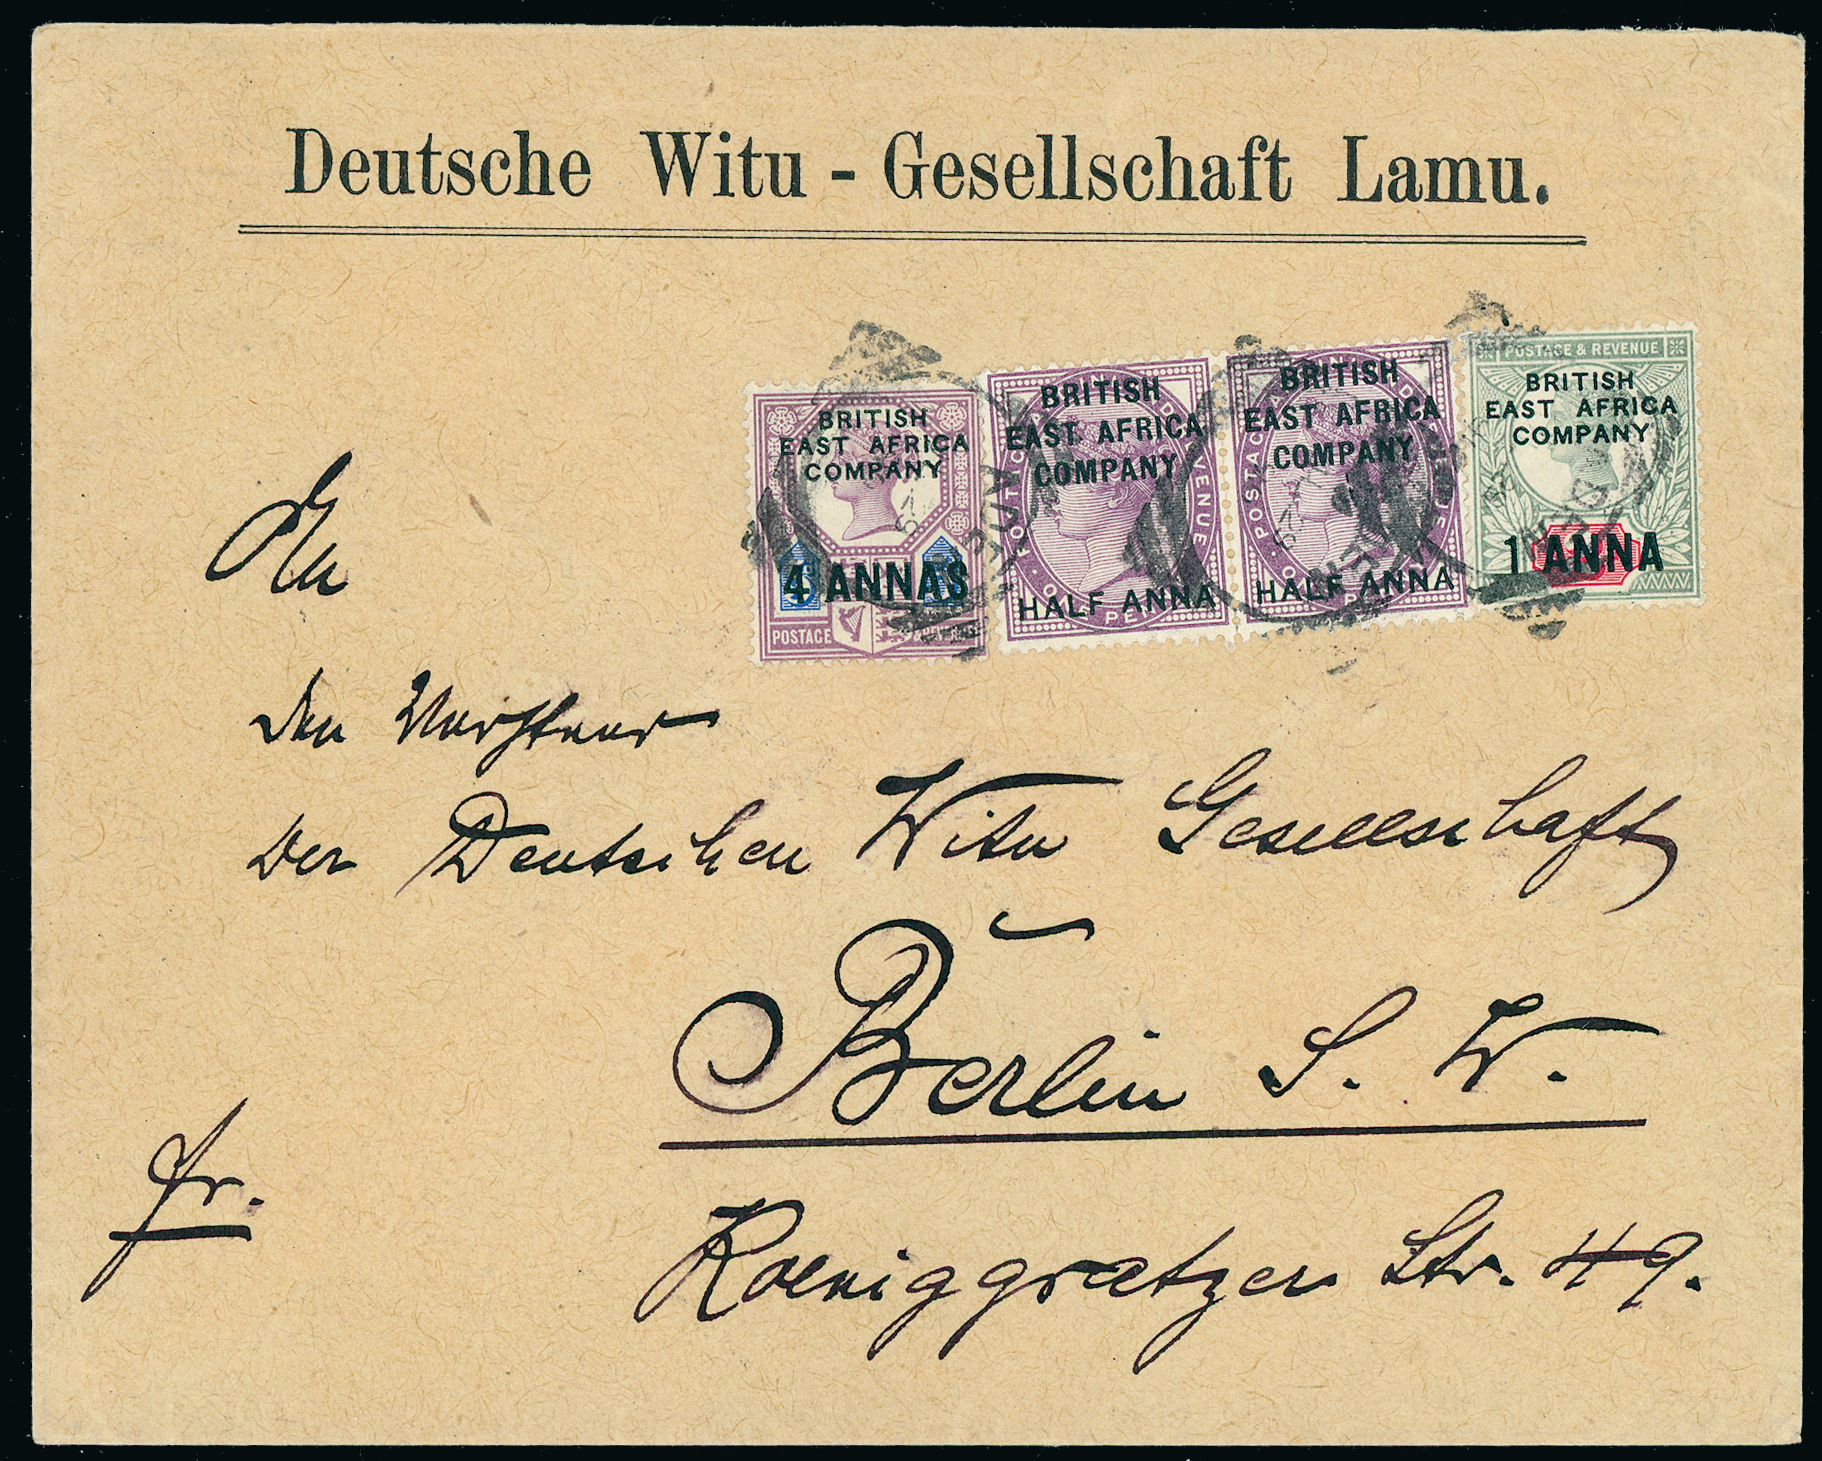 Deutsche Witu - Gesellschaft Lamu.
BRITISH
EAST AFRICA
COMPANY
4 ANNAS
POSTAGE & REVENUE
BRITISH
EAST AFRICA
COMPANY
HALF ANNA
BRITISH
EAST AFRICA
COMPANY
HALF ANNA
POSTAGE & REVENUE
BRITISH
EAST AFRICA
COMPANY
1 ANNA
An
den
der Deutschen Witu Gesellschaft
Berlin S. W.
fr.
Koeniggraetzer Str. 49.